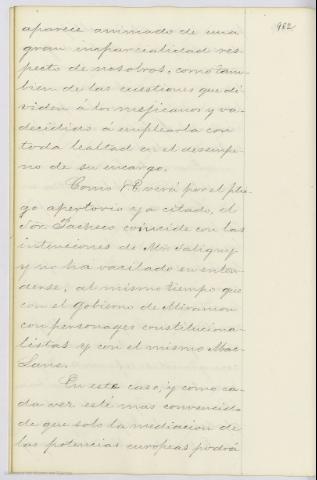 962
aparece animado de una
gran imparcialidad res-
pecto de nosotros, como tam-
bien de las cuestiones que di-
viden á los mejicanos y va
decidido á emplearla con
toda lealtad en el desempe-
no de su encargo.
Como V.E. verá por el plie-
go apertorio ya citado, el
Sor. Pacheco coincide con las
intenciones de Mr. Saligny
y no ha vacilado en enten-
derse, al mismo tiempo que
con el Gobierno de Miramon
con personages constituciona-
listas y con el mismo Mac-
Lane.
En este caso, y como ca-
da vez esté mas convencido
de que solo la mediacion de
las potencias europeas podrá